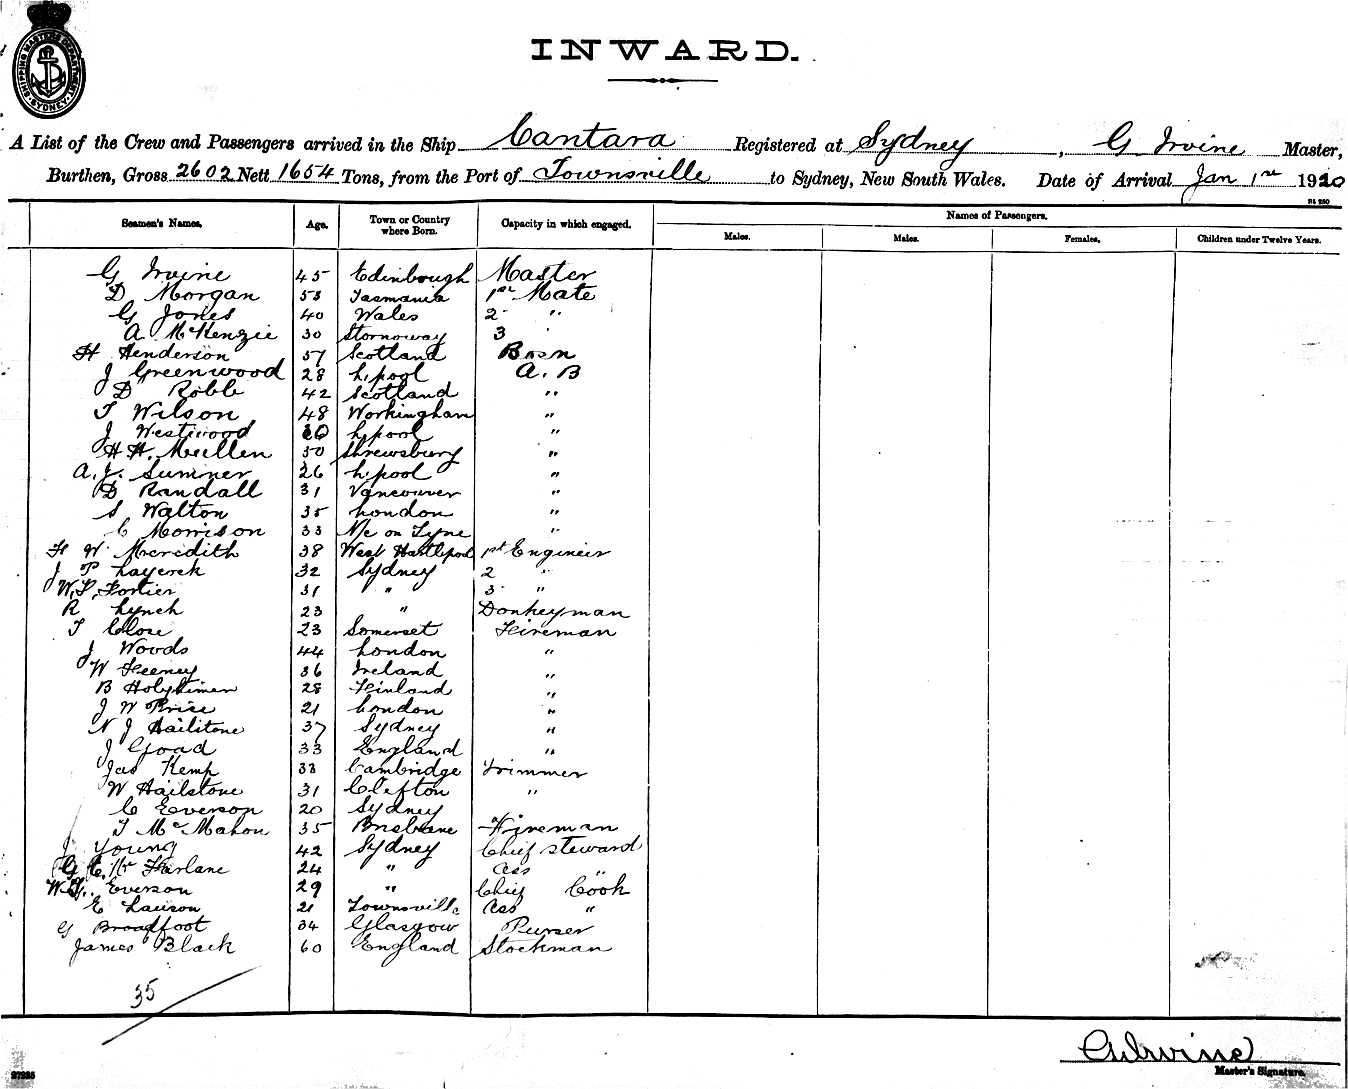 SHIPPING MASTER'S DEPARTMENT SYDNEY
INWARD.
A List of the Crew and Passengers arrived in the Ship Cantara Registered at Sydney, G Irvine Master,
Burthen, Gross 2602 Nett 1654 Tons, from the Port of Townsville to Sydney, New South Wales. Date of Arrival Jan 1st 1920
Seamen's Names. Age. Town or Country where Born. Capacity in which engaged. Names of Passengers.
Males. Males. Females. Children under Twelve Years.
G Irvine 45 Edinbough Master
D Morgan 53 Tasmania 1st Mate
G Jones 40 Wales 2 "
A McKenzie 30 Stornoway 3
H Henderson 57 Scotland Bosn
J Greenwood 28 L.pool A. B
D Robb 42 Scotland "
T Wilson 48 Workingham "
J Westwood L.pool "
H H. Mullen 50 Shrewsbury "
A. J. Sumner 26 L.pool "
D Randall 31 Vancouver "
S Walton 35 London "
C Morrison 33 N/c on Tyne "
F W. Meredith 38 West Hartlepool 1st Engineer
J P Laycock 32 Sydney 2 "
W. P. Fortier 31 " 3 "
R Lynch 23 " Donkeyman
T Close 23 Somerset Fireman
J Woods 44 London "
W Feeney 36 Ireland "
B 28 Finland "
J W Price 21 London "
N J Hailstone 37 Sydney "
J Goad 33 England "
Jas Kemp 33 Cambridge Trimmer
W Hailstone 31 Clifton "
C Everson 20 Sydney
T McMahon 35 Brisbane Fireman
J Young 42 Sydney Chief Steward
G C. McFarlane 24 " Ass "
Everson 29 " Chief Cook
E Lawson 21 Townsville Ass "
G Broadfoot 34 Glasgow Purser
James Black 60 England Stockman
35
G Irvine
Master's Signature.